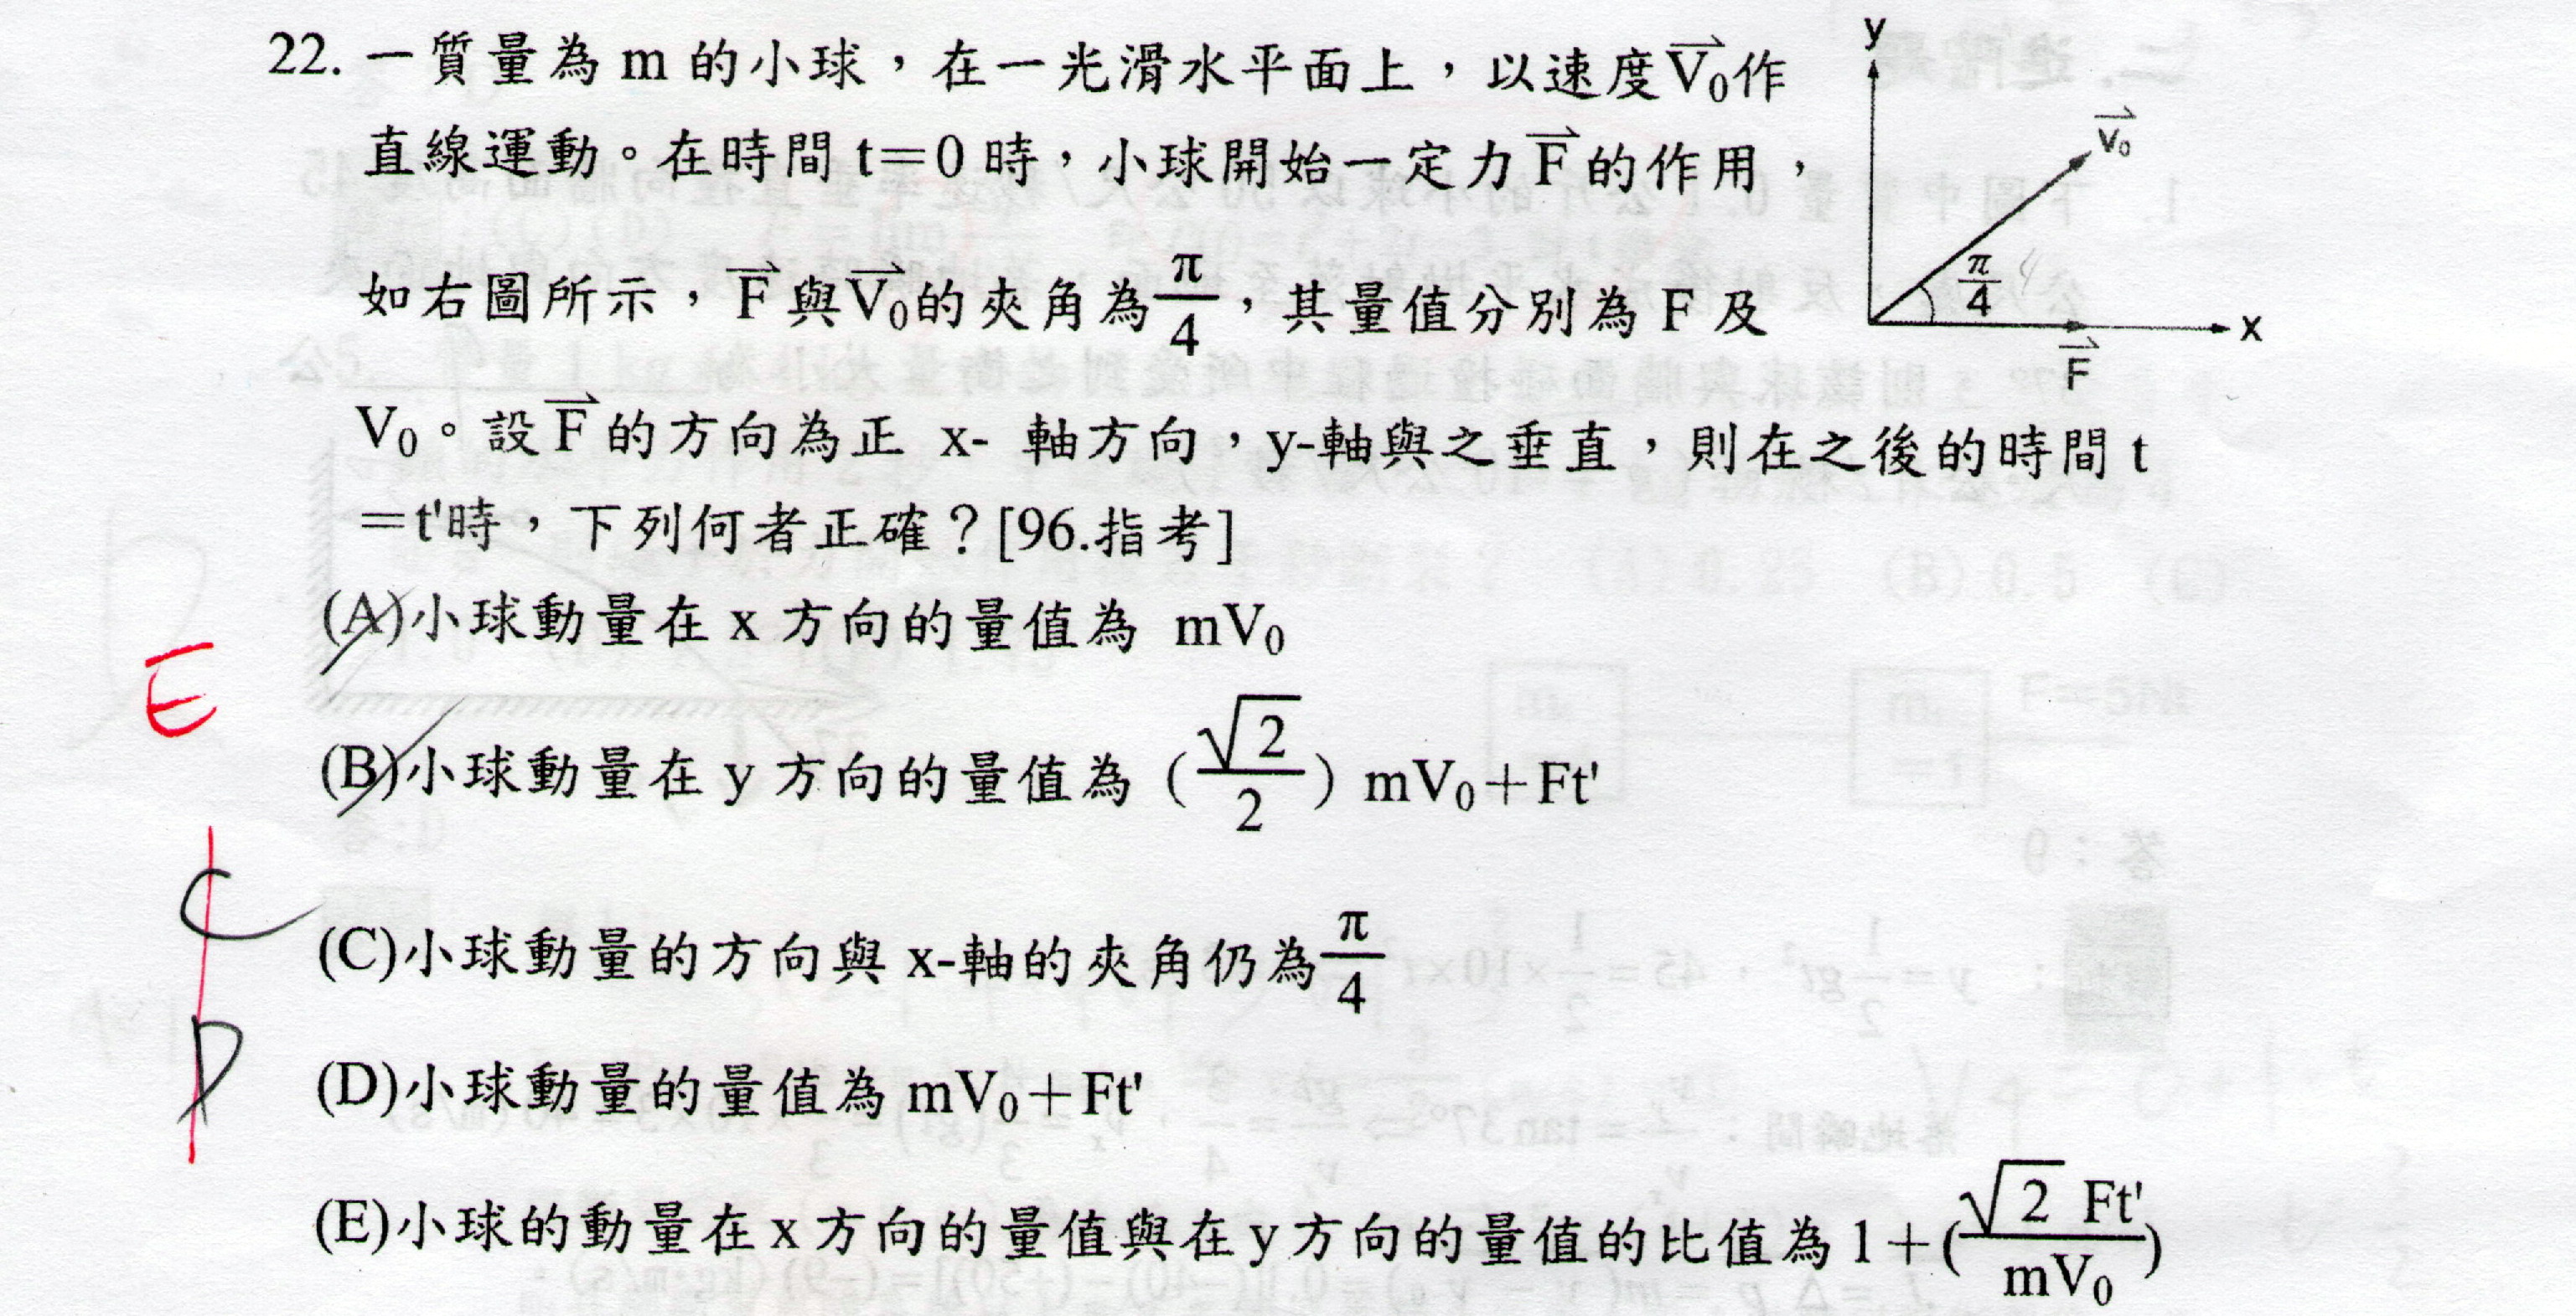 22. 一質量為 m 的小球，在一光滑水平面上，以速度V₀作
直線運動。在時間 t＝0 時，小球開始一定力 F 的作用，
如右圖所示，F 與V₀的夾角為π/4，其量值分別為 F 及
V₀。設F 的方向為正 x- 軸方向，y-軸與之垂直，則在之後的時間 t
＝t'時，下列何者正確？[96.指考]
(A)小球動量在 x 方向的量值為 mV₀
(B)小球動量在 y 方向的量值為（√2/2）mV₀＋Ft'
(C)小球動量的方向與 x-軸的夾角仍為π/4
(D)小球動量的量值為 mV₀＋Ft'
(E)小球的動量在x方向的量值與在y方向的量值的比值為1＋(√2 Ft'/mV₀)
y
V₀
π/4
x
F
E
C
D